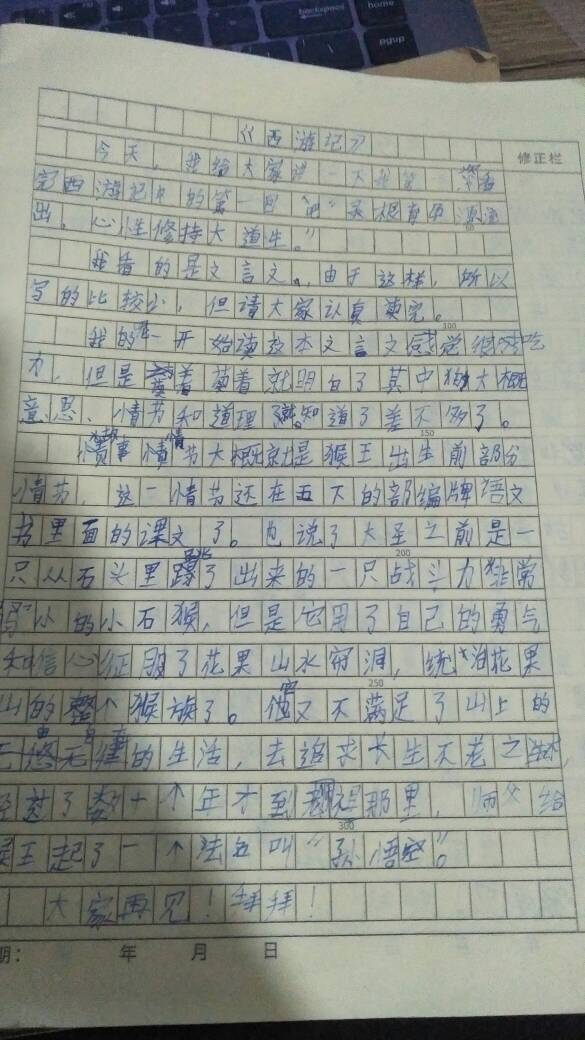 backspace
home
pgup
《西游记》
修正栏
今天，我给大家讲一下我第一 看
完西游记中的第一回"
出，心性修持大道生。"
我看的是文言文，由于这样，所以
写的比较少，但请大家认真 完。
我的一开始读这本文言文感觉很 吃
力，但是 着 着就明白了其中 大概
意思、情节和道理 知道了差不多了。
故事情节大概就是猴王出生前部分
150
情节，这一情节还在五下的部编牌语文
书里面的课文了。也说了大圣之前是一
200
只从石头里蹦了出来的一只战斗力非常
小的小石猴，但是它用了自己的勇气
和信心征服了花果山水帘洞，统治花果
250
山的整个猴族了。他又不满足了山上的
无 无 的生活，去追求长生不老之
过了数十个年才到 那里，师父给
300
王起了一个法名叫"孙悟空"。
大家再见！拜拜！
期： 年 月 日